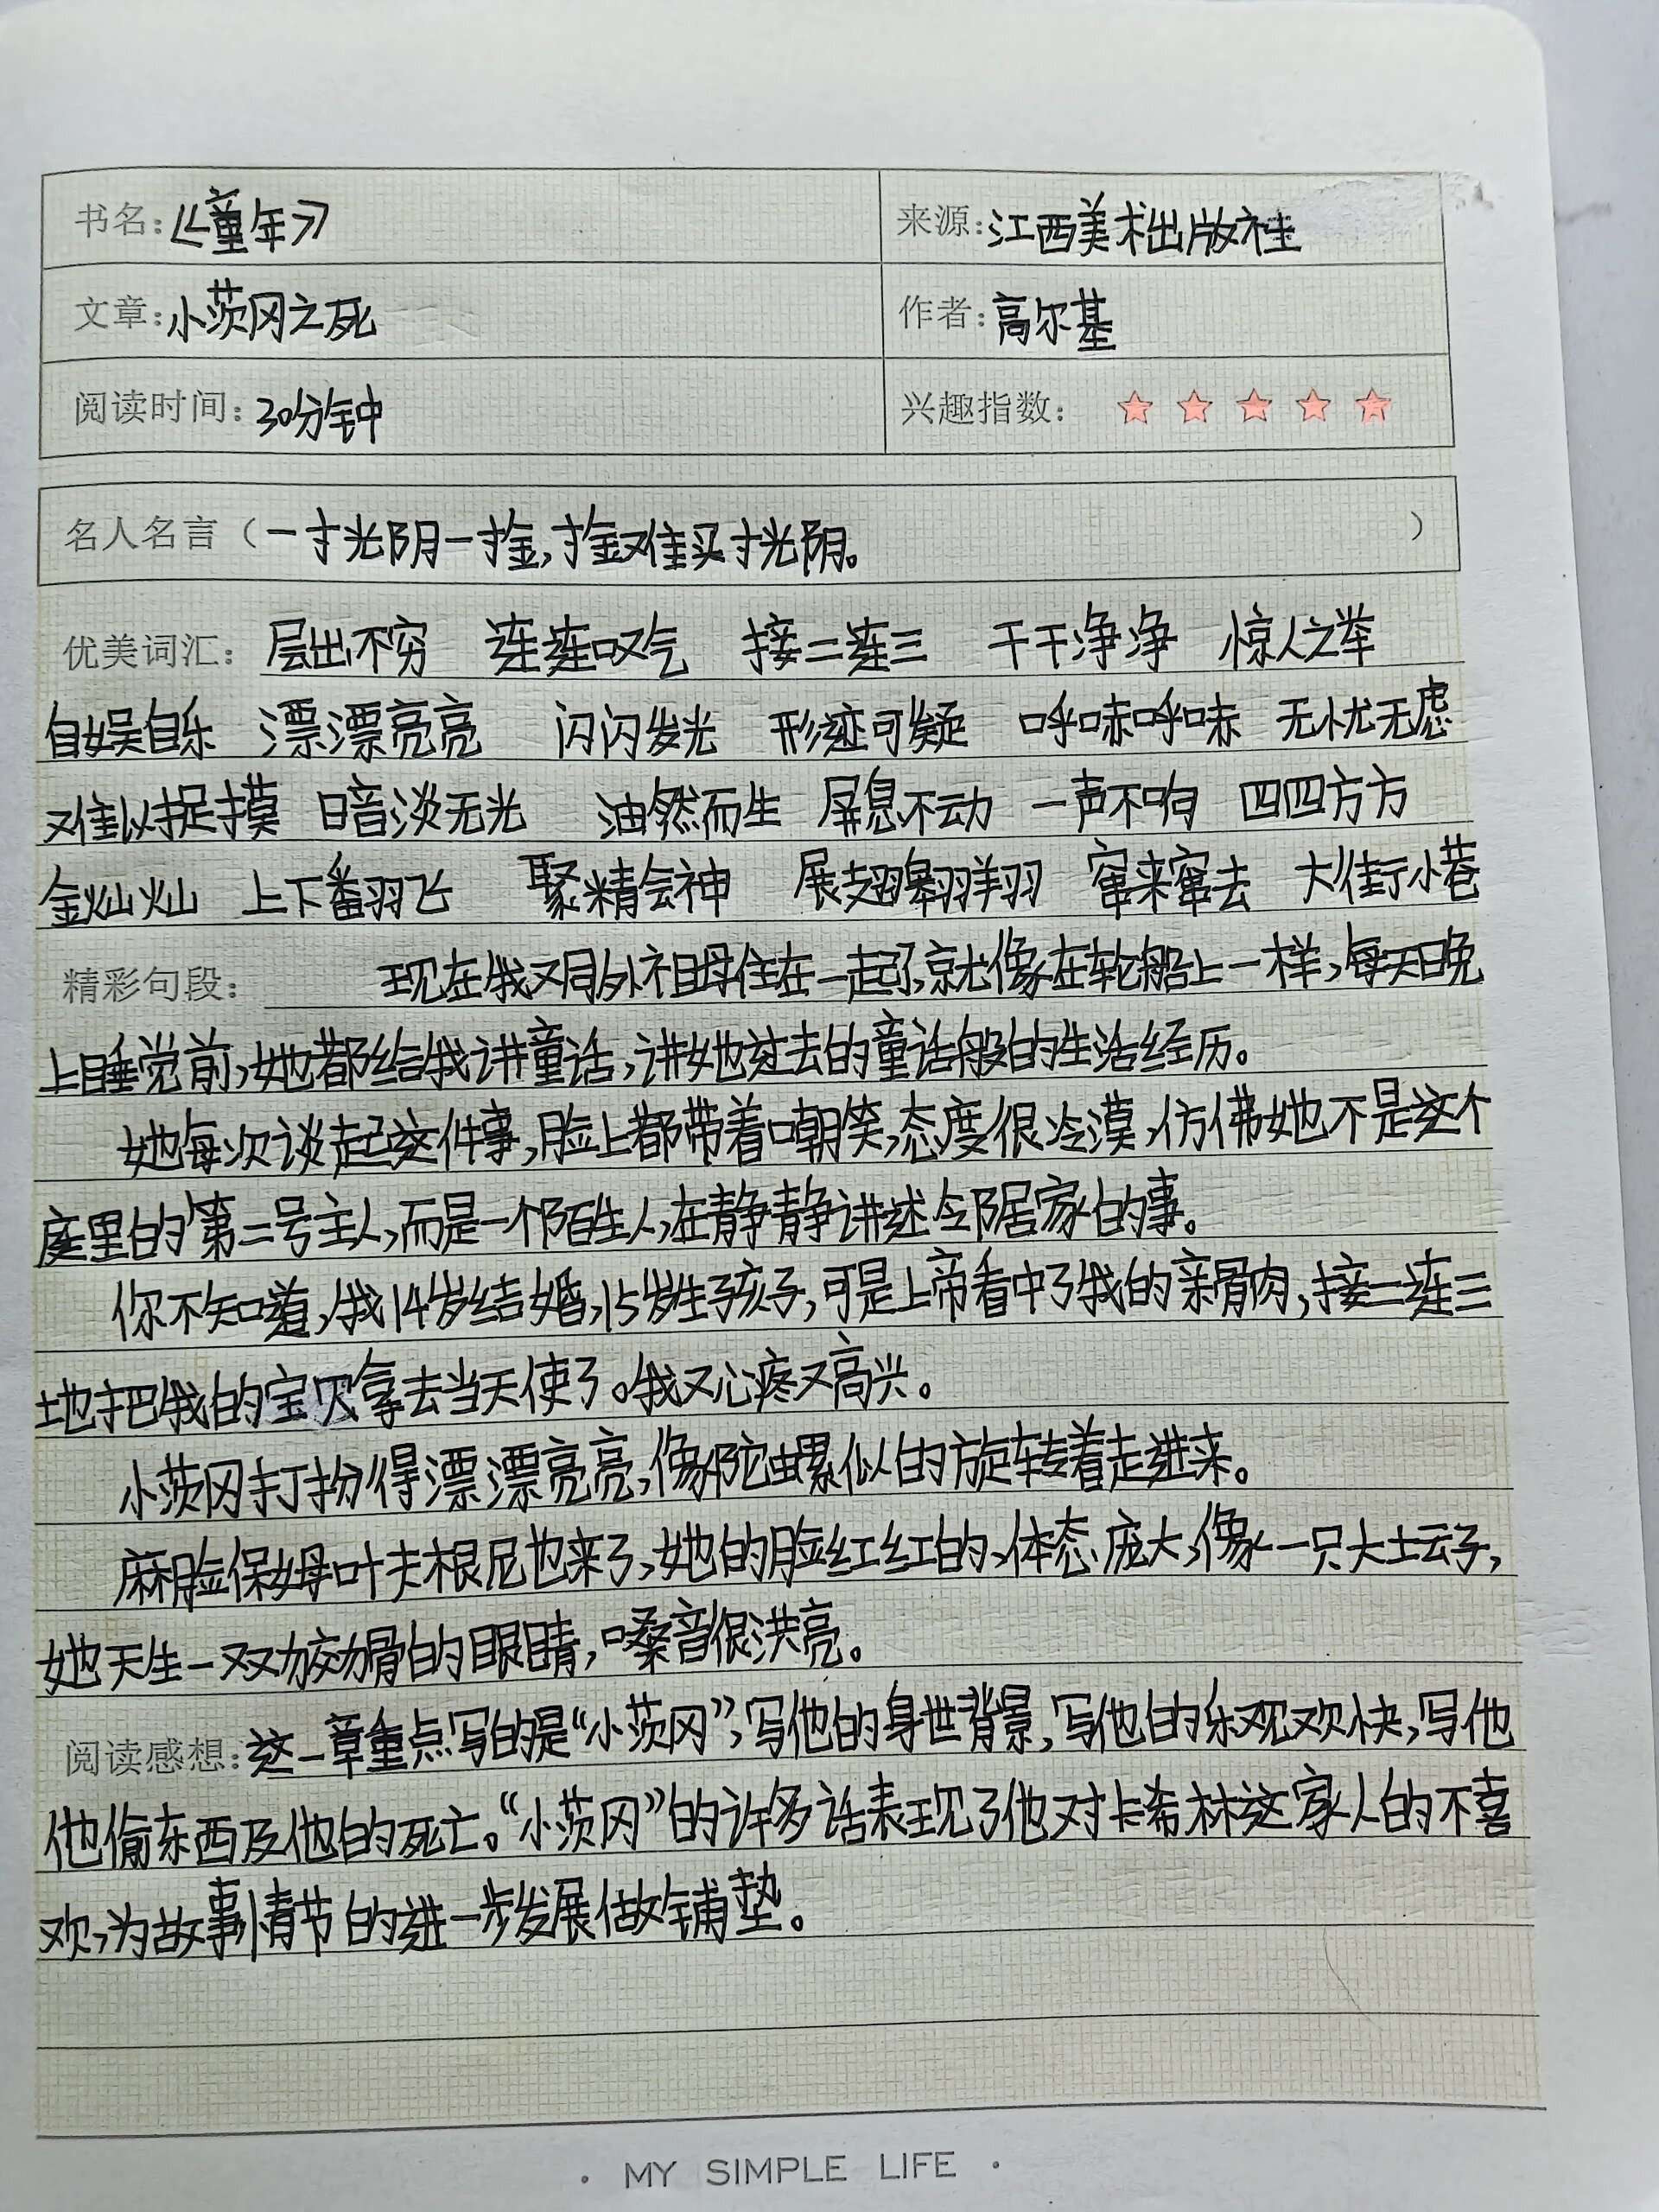 书名:《童年》 来源:江西美术出版社
文章:小茨冈之死 作者:高尔基
阅读时间:30分钟 兴趣指数: ☆☆☆☆☆
名人名言(一寸光阴一寸金,寸金难买寸光阴。)
优美词汇: 层出不穷 连连叹气 接二连三 干干净净 惊人之举
自娱自乐 漂漂亮亮 闪闪发光 形迹可疑 呼哧呼哧 无忧无虑
难以捉摸 暗淡无光 油然而生 屏息不动 一声不响 四四方方
金灿灿 上下翻飞 聚精会神 展翅翱翔 窜来窜去 大街小巷
精彩句段: 现在我又同外祖母住在一起了,就像在轮船上一样,每天晚
上睡觉前,她都给我讲童话,讲她过去的童话般的生活经历。
她每次谈起这件事,脸上都带着嘲笑,态度很冷漠,仿佛她不是这个
庭里的第二号主人,而是一个陌生人,在静静讲述邻居家的事。
你不知道,我14岁结婚,15岁生了孩子,可是上帝看中了我的亲骨肉,接二连三
地把我的宝贝拿去当天使了。我又心疼又高兴。
小茨冈打扮得漂漂亮亮,像陀螺似的旋转着走进来。
麻脸保姆叶夫根尼也来了,她的脸红红的,体态庞大,像一只大坛子,
她天生一双的眼睛,嗓音很洪亮。
阅读感想:这一章重点写的是“小茨冈”,写他的身世背景,写他的乐观欢快,写他
他偷东西及他的死亡。“小茨冈”的许多话表现了他对卡希林这家人的不喜
欢,为故事情节的进一步发展做铺垫。
· MY SIMPLE LIFE ·